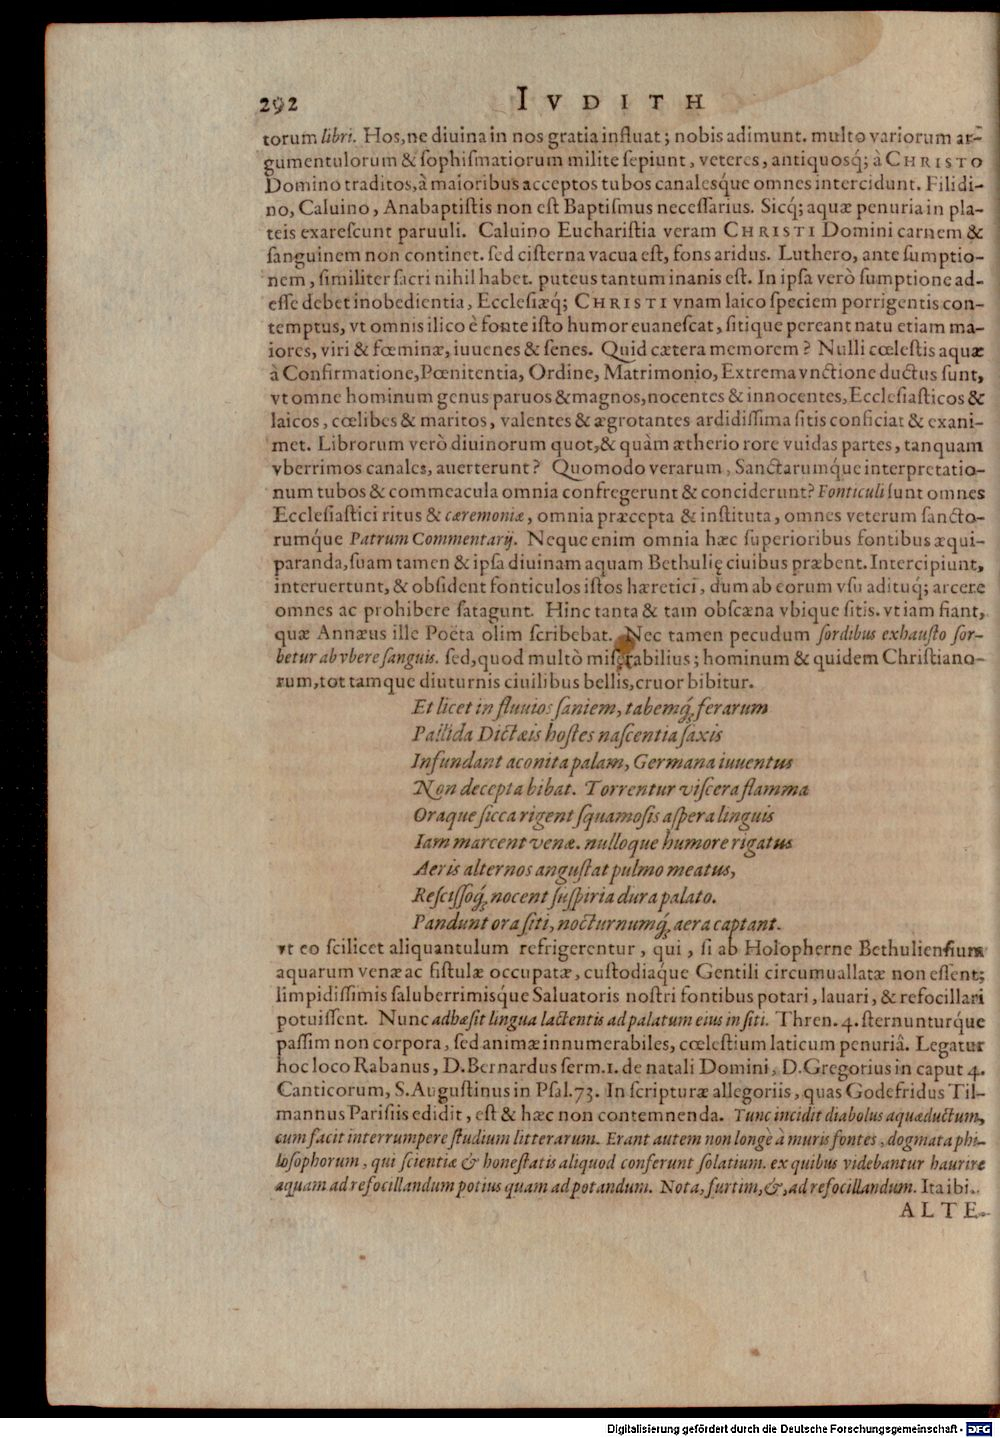 292 IVDITH
torum libri. Hos, ne diuina in nos gratia influat; nobis adimunt. multo variorum ar-
gumentulorum & sophismatiorum milite sepiunt, veteres, antiquosq́; à CHRISTO
Domino traditos, à maioribus acceptos tubos canalesq́ue omnes intercidunt. Filidi-
no, Caluino, Anabaptistis non est Baptismus necessarius. Sicq́; aquæ penuria in pla-
teis exarescunt paruuli. Caluino Eucharistia veram CHRISTI Domini carnem &
sanguinem non continet. sed cisterna vacua est, fons aridus. Luthero, ante sumptio-
nem, similiter sacri nihil habet. puteus tantum inanis est. In ipsa verò sumptione ad-
esse debet inobedientia, Ecclesiæq́; CHRISTI vnam laico speciem porrigentis con-
temptus, vt omnis ilico è fonte isto humor euanescat, sitique pereant natu etiam ma-
iores, viri & fœminæ, iuuenes & senes. Quid cætera memorem? Nulli cœlestis aquæ
à Confirmatione, Pœnitentia, Ordine, Matrimonio, Extrema vnctione ductus sunt,
vt omne hominum genus paruos & magnos, nocentes & innocentes, Ecclesiasticos &
laicos, cœlibes & maritos, valentes & ægrotantes ardidissima sitis conficiat & exani-
met. Librorum verò diuinorum quot, & quàm ætherio rore vuidas partes, tanquam
vberrimos canales, auerterunt? Quomodo verarum, Sanctarumq́ue interpretatio-
num tubos & commeacula omnia confregerunt & conciderunt? Fonticuli sunt omnes
Ecclesiastici ritus & cæremoniæ, omnia præcepta & instituta, omnes veterum sancto-
rumque Patrum Commentarij. Neque enim omnia hæc superioribus fontibus æqui-
paranda, suam tamen & ipsa diuinam aquam Bethulię ciuibus præbent. Intercipiunt,
interuertunt, & obsident fonticulos istos hæretici, dum ab eorum vsu adituq́; arcere
omnes ac prohibere satagunt. Hinc tanta & tam obscæna vbique sitis. vt iam fiant,
quæ Annæus ille Poëta olim scribebat. Nec tamen pecudum sordibus exhausto sor-
betur ab vbere sanguis. sed, quod multò miserabilius; hominum & quidem Christiano-
rum, tot tamque diuturnis ciuilibus bellis, cruor bibitur.
Et licet in fluuios saniem, tabemq́; ferarum
Pallida Dictæis hostes nascentia saxis
Infundant aconita palam, Germana iuuentus
Non decepta bibat. Torrentur viscera flamma
Oraque sicca rigent squamosis aspera linguis
Iam marcent venæ. nulloque humore rigatus
Aeris alternos angustat pulmo meatus,
Rescissoq́; nocent suspiria dura palato.
Pandunt ora siti, nocturnumq́; aera captant.
vt eo scilicet aliquantulum refrigerentur, qui, si ab Holopherne Bethuliensium
aquarum venæ ac fistulæ occupatæ, custodiaq́ue Gentili circumuallatæ non essent;
limpidissimis saluberrimisq́ue Saluatoris nostri fontibus potari, lauari, & refocillari
potuissent. Nunc adhæsit lingua lactentis ad palatum eius in siti. Thren. 4. sternunturq́ue
passim non corpora, sed animæ innumerabiles, cœlestium laticum penuriâ. Legatur
hoc loco Rabanus, D. Bernardus serm. 1. de natali Domini, D. Gregorius in caput 4.
Canticorum, S. Augustinus in Psal. 73. In scripturæ allegoriis, quas Godefridus Til-
mannus Parisiis edidit, est & hæc non contemnenda. Tunc incidit diabolus aquæductum,
cum facit interrumpere studium litterarum. Erant autem non longè à muris fontes, dogmata phi-
losophorum, qui scientiæ & honestatis aliquod conferunt solatium. ex quibus videbantur haurire
aquam ad refocillandum potius quam ad potandum. Nota, furtim, &, ad refocillandum. Ita ibi.
ALTE-
Digitalisierung gefördert durch die Deutsche Forschungsgemeinschaft - DFG